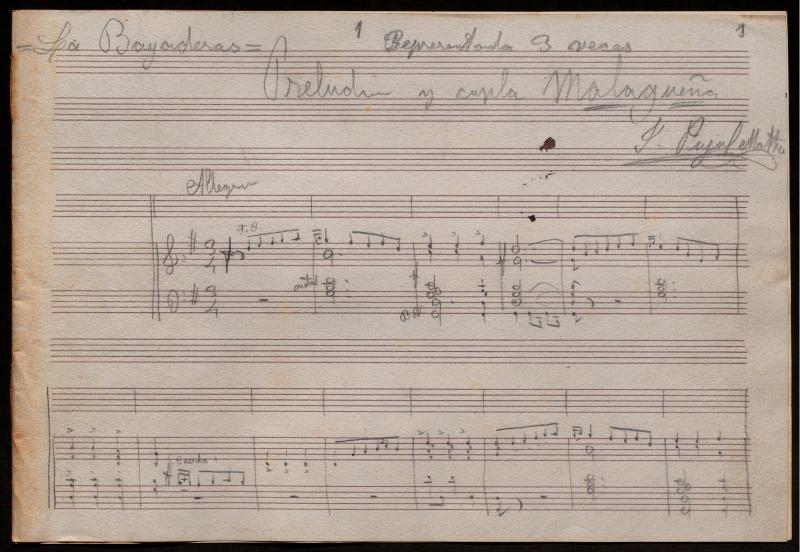 =La Bayaderas= 1 Representada 3 veces 1
Preludio y copla Malagueña
J. Pujol Matheu
Allegro
Cuerda